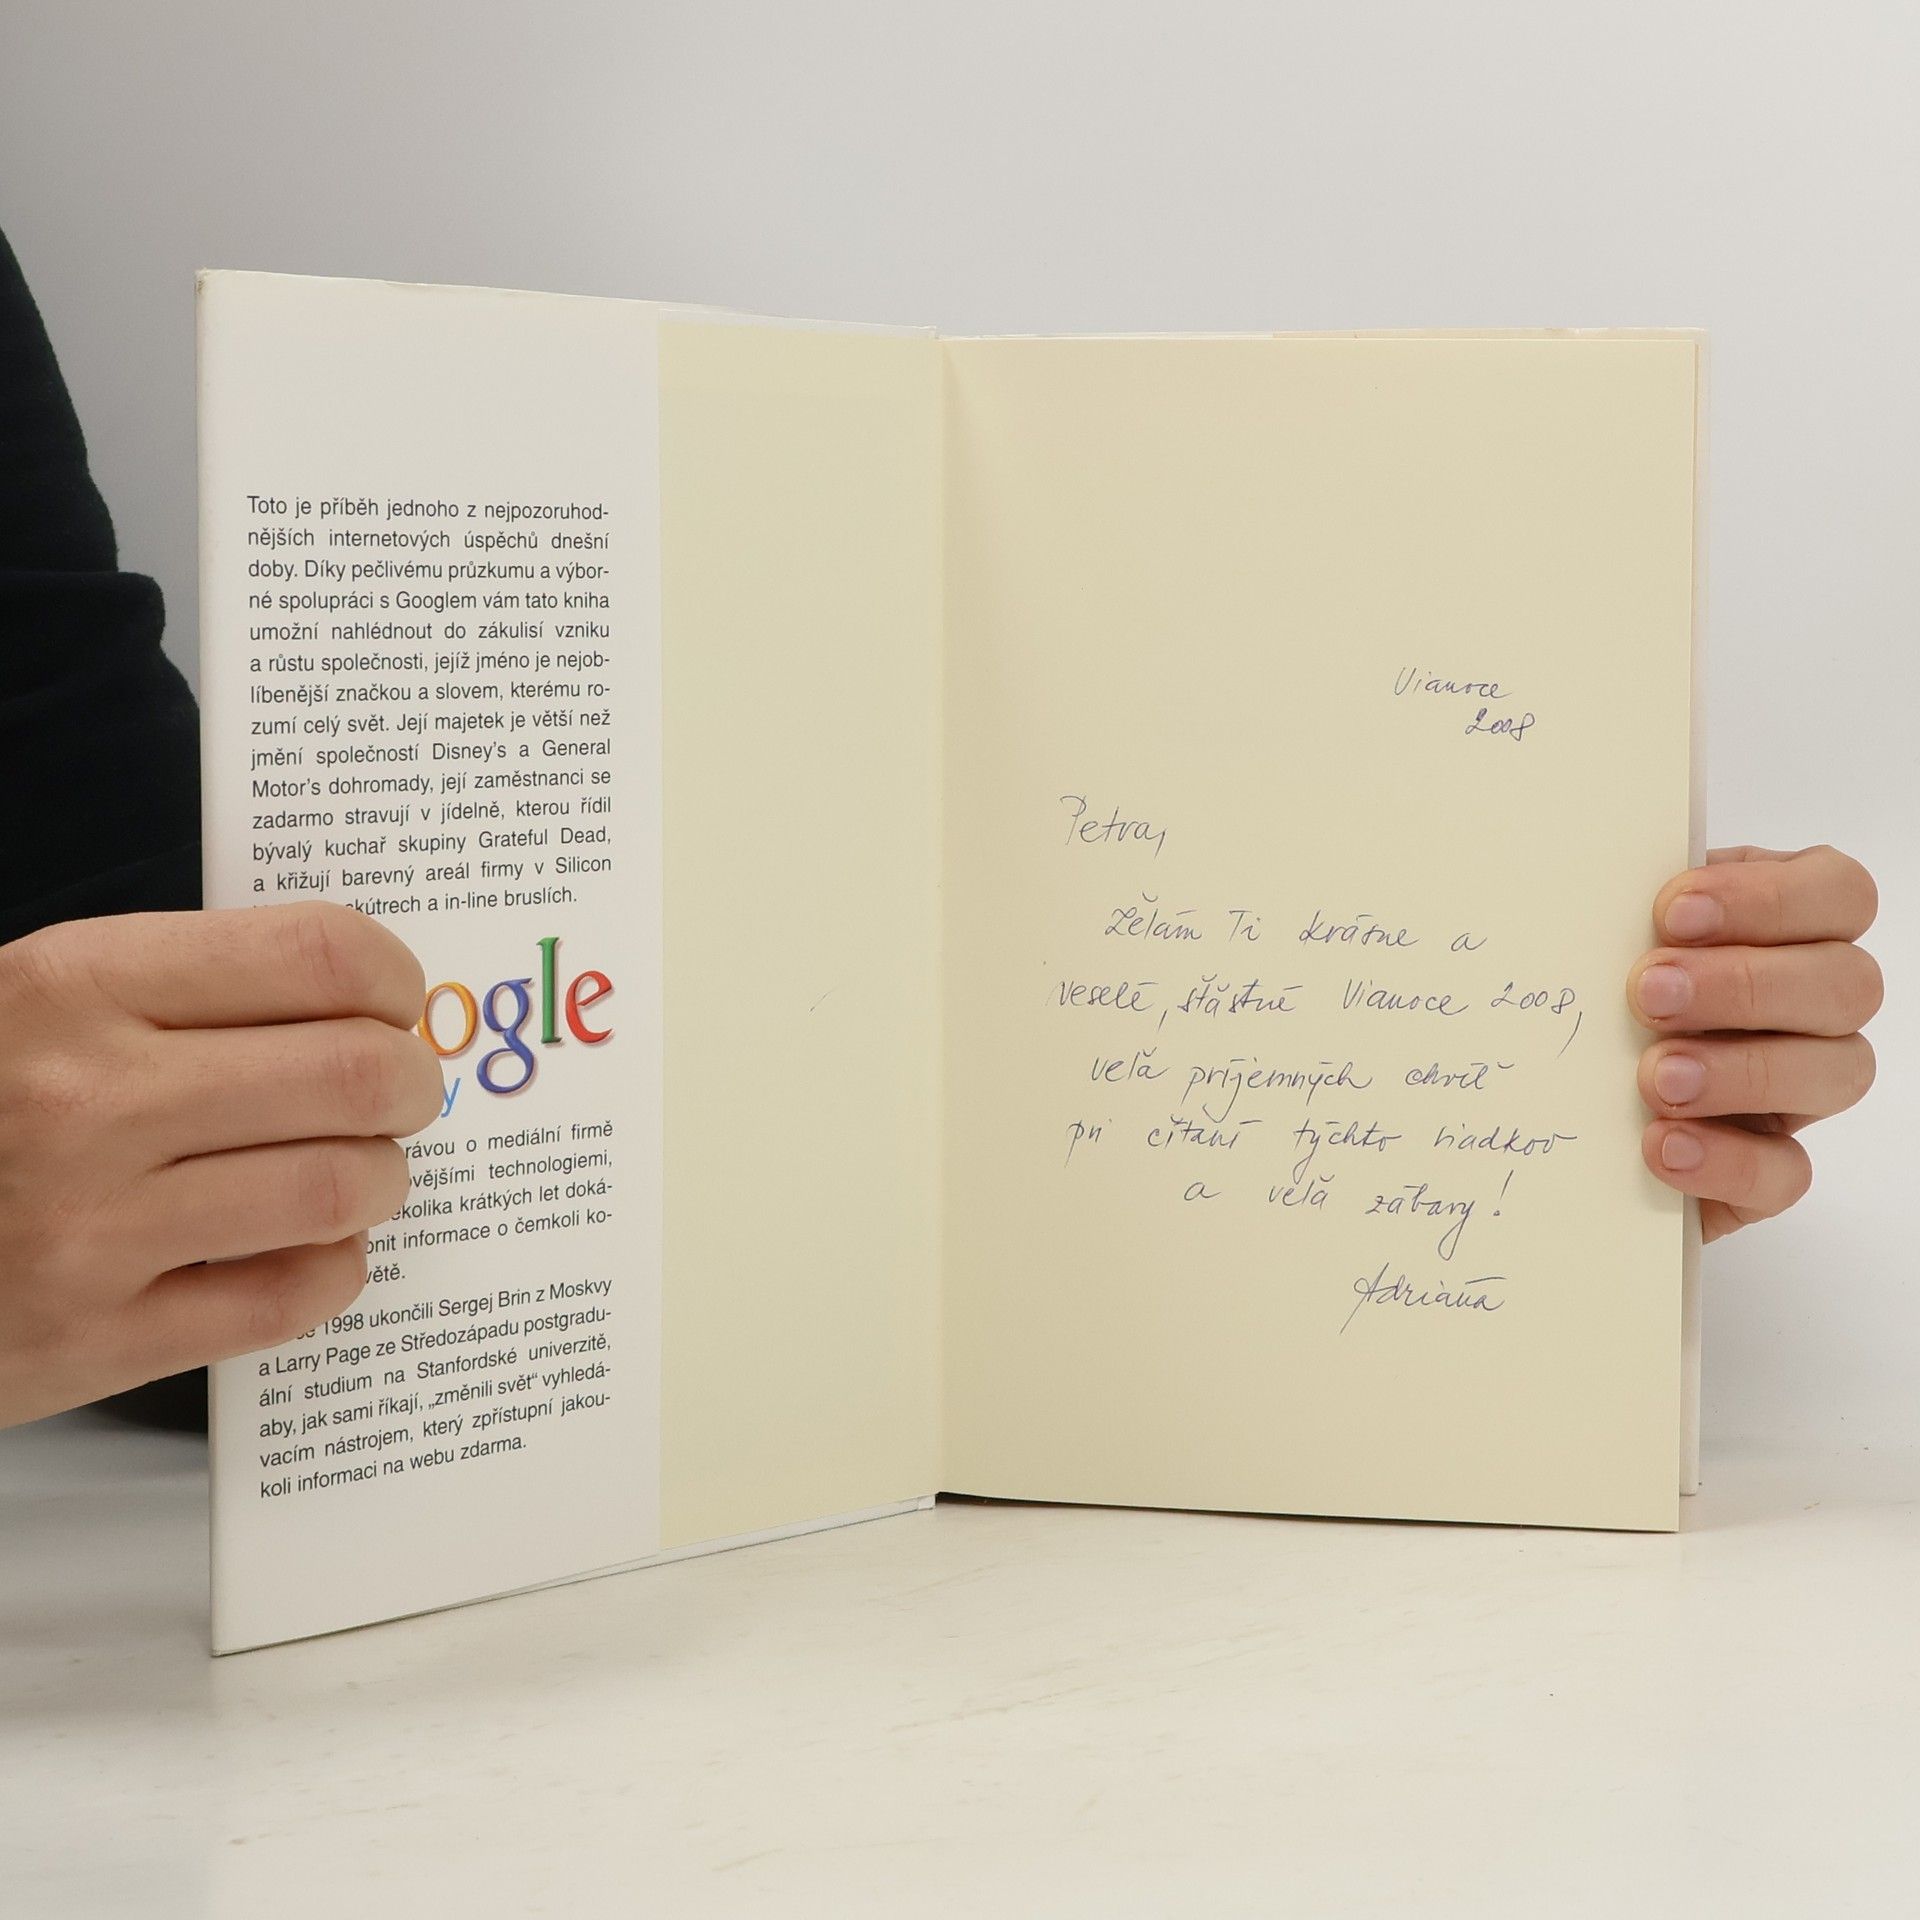 Toto je příběh jednoho z nejpozoruhod-
nějších internetových úspěchů dnešní
doby. Díky pečlivému průzkumu a výbor-
né spolupráci s Googlem vám tato kniha
umožní nahlédnout do zákulisí vzniku
a růstu společnosti, jejíž jméno je nejob-
líbenější značkou a slovem, kterému ro-
zumí celý svět. Její majetek je větší než
jmění společností Disney's a General
Motor's dohromady, její zaměstnanci se
zadarmo stravují v jídelně, kterou řídil
bývalý kuchař skupiny Grateful Dead,
a křižují barevný areál firmy v Silicon
skútrech a in-line bruslích.
ogle
y
rávou o mediální firmě
ovějšími technologiemi,
ěkolika krátkých let doká-
onit informace o čemkoli ko-
větě.
1998 ukončili Sergej Brin z Moskvy
a Larry Page ze Středozápadu postgradu-
ální studium na Stanfordské univerzitě,
aby, jak sami říkají, „změnili svět“ vyhledá-
vacím nástrojem, který zpřístupní jakou-
koli informaci na webu zdarma.
Vianoce
2008
Petra,
Želám Ti krásne a
veselé, šťastné Vianoce 2008,
veľa príjemných chvíľ
pri čítaní týchto riadkov
a veľa zábavy!
Adriana